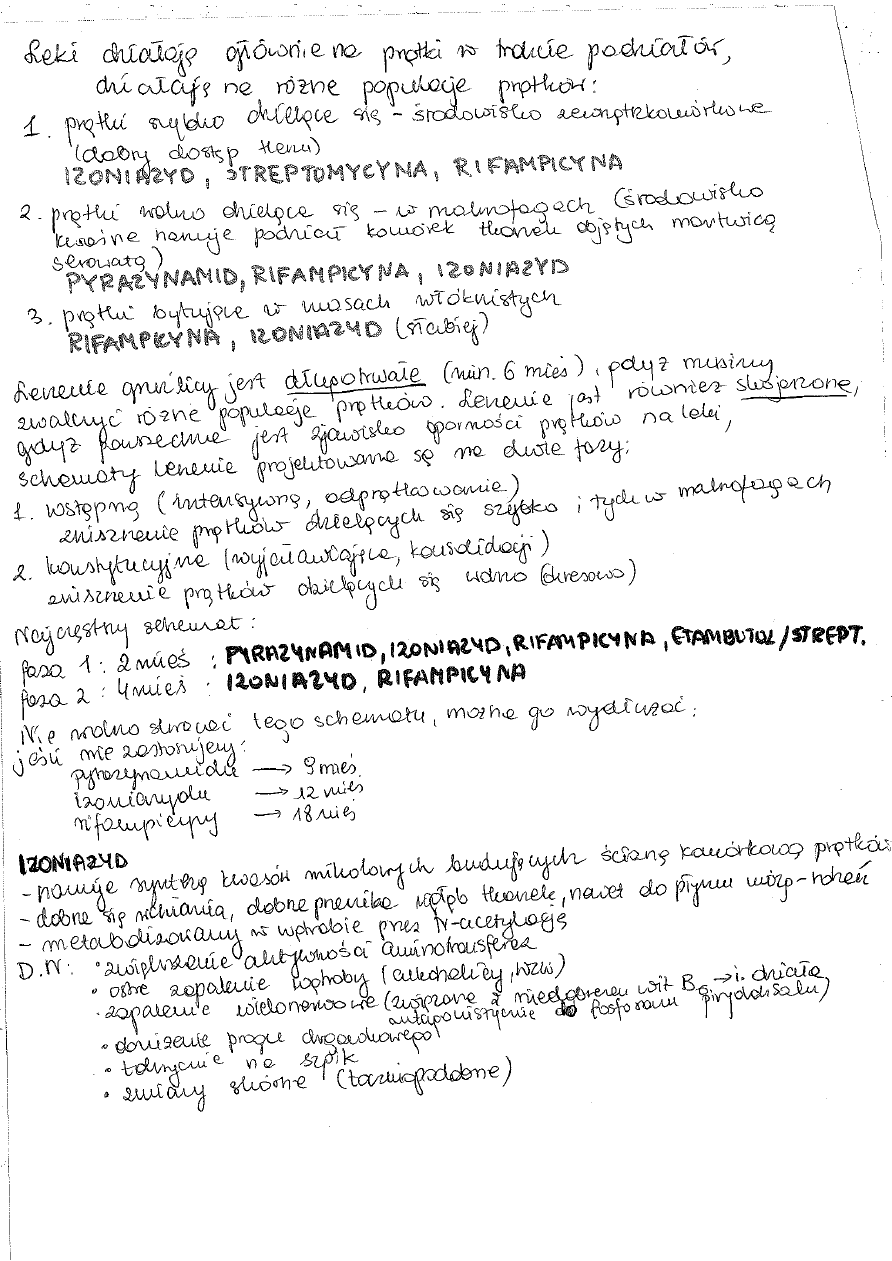 Leki działają głównie na prątki w trakcie podziałów,
działają na różne populacje prątków:
1. prątki szybko dzielące się - środowisko zewnątrzkomórkowe
(dobry dostęp tlenu)
IZONIAZYD, STREPTOMYCYNA, RIFAMPICYNA
2. prątki wolno dzielące się - w makrofagach (środowisko
kwaśne hamuje podział komórek tkanek objętych martwicą
serowatą)
PYRAZYNAMID, RIFAMPICYNA, IZONIAZYD
3. prątki bytujące w masach włóknistych
RIFAMPICYNA, IZONIAZYD (słabiej)
Leczenie gruźlicy jest długotrwałe (min. 6 mies), gdyż musimy
zwalczyć różne populacje prątków. Leczenie jest również skojarzone,
gdyż powszechne jest zjawisko oporności prątków na leki,
schematy leczenia projektowane są na dwie fazy:
1. wstępną (intensywną, odprątkowanie)
zniszczenie prątków dzielących się szybko i tych w makrofagach
2. konstytucyjne (wyjaławiające, konsolidacji)
zniszczenie prątków dzielących się wolno (okresowo)
Najczęstszy schemat:
faza 1: 2 mies: PYRAZYNAMID, IZONIAZYD, RIFAMPICYNA, ETAMBUTOL/STREPT.
faza 2: 4 mies: IZONIAZYD, RIFAMPICYNA
Nie wolno skracać tego schematu, można go wydłużać:
jeśli nie zastosujemy:
pyrazynamidu → 9 mies.
izoniazydu → 12 mies
rifampicyny → 18 mies
IZONIAZYD
- hamuje syntezę kwasów mikolowych budujących ścianę komórkową prątków
- dobrze się wchłania, dobrze przenika w głąb tkanek, nawet do płynu mózg-rdzeń
- metabolizowany w wątrobie przez N-acetylację
D.N: • zwiększenie aktywności aminotransferaz
• ostre zapalenie wątroby (alkoholicy, wzw)
• zapalenie wielonerwowe (związane z niedoborem wit B6 → i. działa
antagonistycznie do fosforanu pirydoksalu)
• obniżenie progu drgawkowego
• toksycznie na szpik
• zmiany skórne (toczniopodobne)